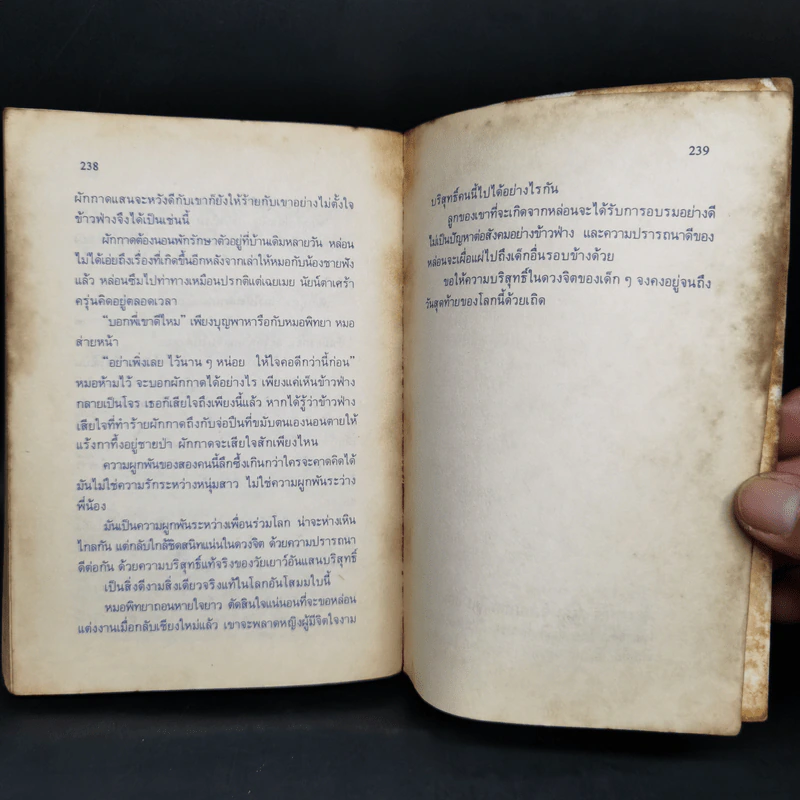 238
ผักกาดแสนจะหวังดีกับเขาก็ยังให้ร้ายกับเขาอย่างไม่ตั้งใจ
ข้าวฟ่างจึงได้เป็นเช่นนี้
ผักกาดต้องนอนพักรักษาตัวอยู่ที่บ้านเดิมหลายวัน หล่อน
ไม่ได้เอ่ยถึงเรื่องที่เกิดขึ้นอีกหลังจากเล่าให้หมอกับน้องชายฟัง
แล้ว หล่อนซึมไปท่าทางเหมือนปรกติแต่เฉยเมย นัยน์ตาเศร้า
ครุ่นคิดอยู่ตลอดเวลา
“บอกพี่เขาดีไหม” เพียงบุญพาหารือกับหมอพิทยา หมอ
ส่ายหน้า
“อย่าเพิ่งเลย ไว้นาน ๆ หน่อย ให้ใจคอดีกว่านี้ก่อน”
หมอห้ามไว้ จะบอกผักกาดได้อย่างไร เพียงแค่เห็นข้าวฟ่าง
กลายเป็นโจร เธอก็เสียใจถึงเพียงนี้แล้ว หากได้รู้ว่าข้าวฟ่าง
เสียใจที่ทำร้ายผักกาดถึงกับจ่อปืนที่ขมับตนเองนอนตายให้
แร้งกาทึ้งอยู่ชายป่า ผักกาดจะเสียใจสักเพียงไหน
ความผูกพันของสองคนนี้ลึกซึ้งเกินกว่าใครจะคาดคิดได้
มันไม่ใช่ความรักระหว่างหนุ่มสาว ไม่ใช่ความผูกพันระหว่าง
พี่น้อง
มันเป็นความผูกพันระหว่างเพื่อนร่วมโลก น่าจะห่างเหิน
ไกลกัน แต่กลับใกล้ชิดสนิทแน่นในดวงจิต ด้วยความปรารถนา
ดีต่อกัน ด้วยความบริสุทธิ์แท้จริงของวัยเยาว์อันแสนบริสุทธิ์
เป็นสิ่งดีงามสิ่งเดียวจริงแท้ในโลกอันโสมมใบนี้
หมอพิทยาถอนหายใจยาว ตัดสินใจแน่นอนที่จะขอหล่อน
แต่งงานเมื่อกลับเชียงใหม่แล้ว เขาจะพลาดหญิงผู้มีจิตใจงาม
239
บริสุทธิ์คนนี้ไปได้อย่างไรกัน
ลูกของเขาที่จะเกิดจากหล่อนจะได้รับการอบรมอย่างดี
ไม่เป็นปัญหาต่อสังคมอย่างข้าวฟ่าง และความปรารถนาดีของ
หล่อนจะเผื่อแผ่ไปถึงเด็กอื่นรอบข้างด้วย
ขอให้ความบริสุทธิ์ในดวงจิตของเด็ก ๆ จงคงอยู่จนถึง
วันสุดท้ายของโลกนี้ด้วยเถิด